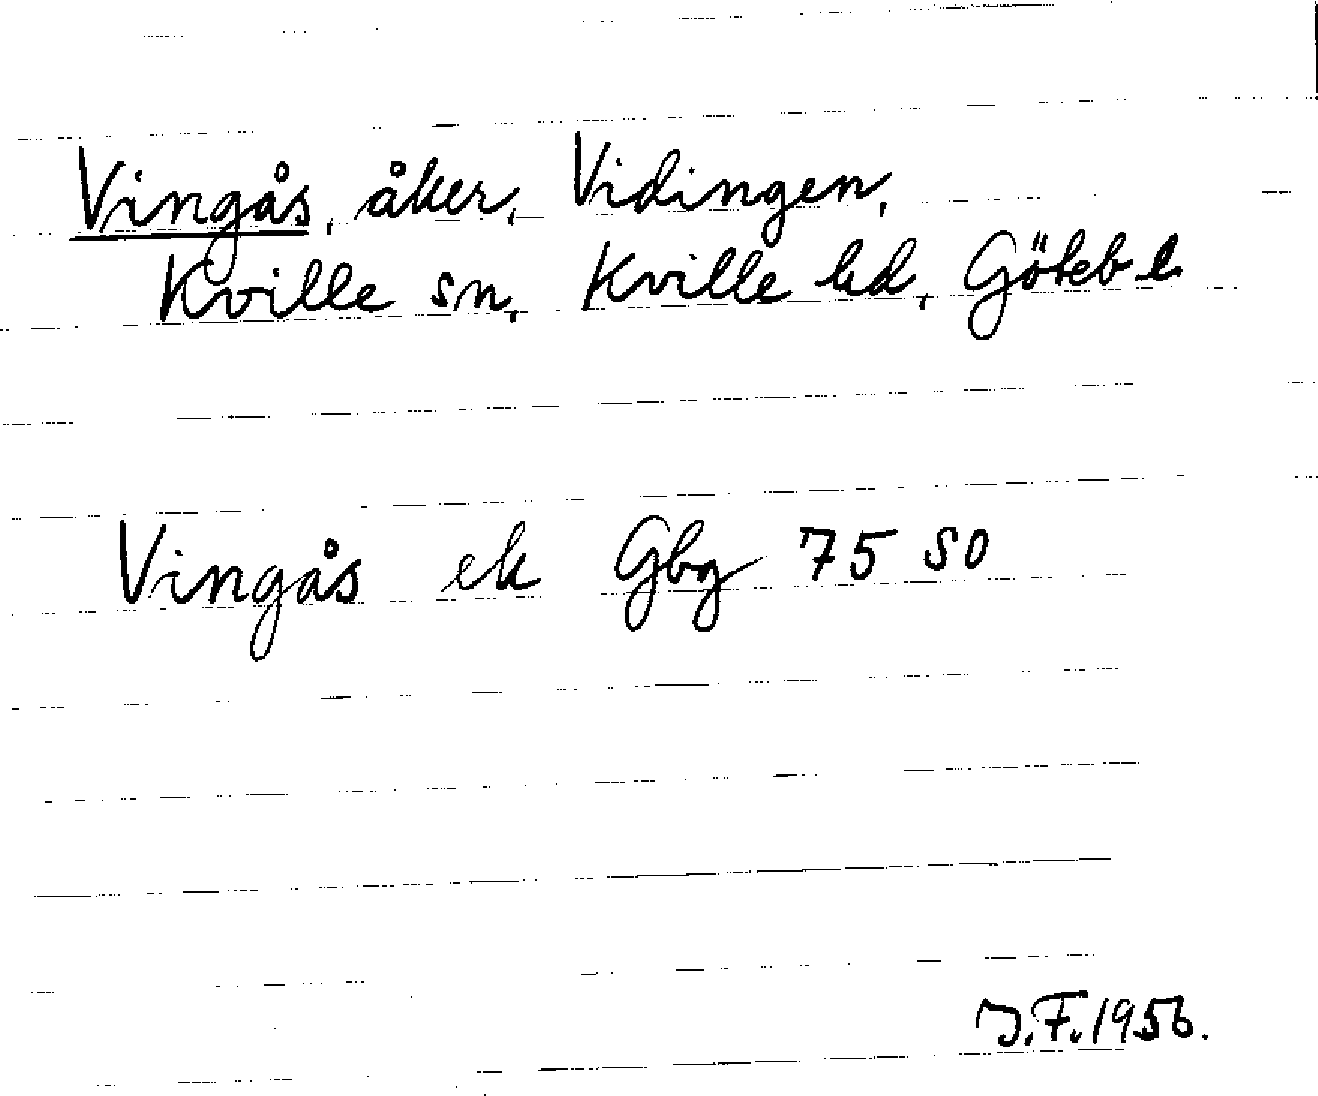 Vingås, åker, Vidingen,
Kville sn, Kville hd, Göteb l.
Vingås ek Gbg 75 SO
J.F. 1956.